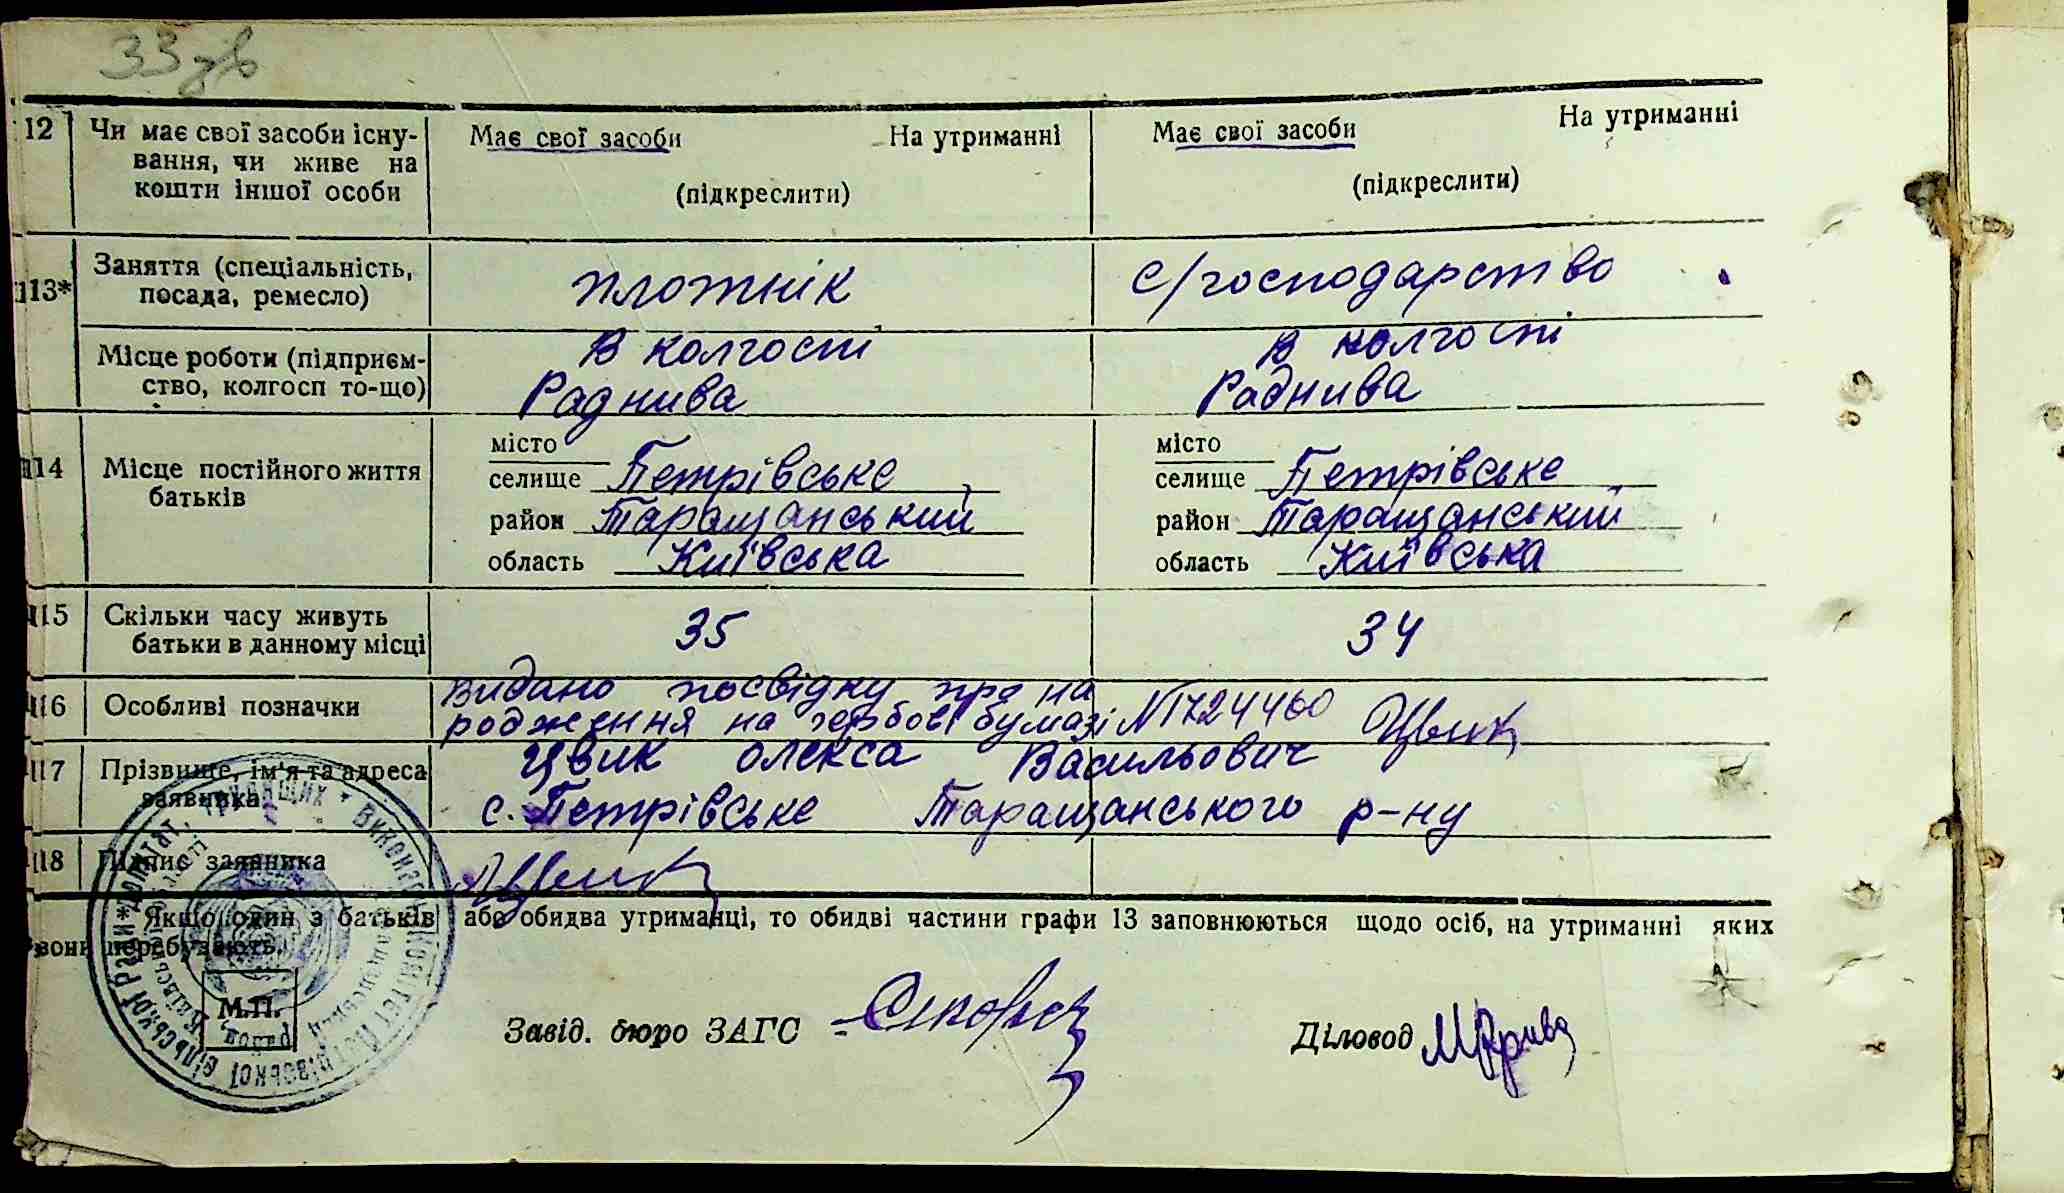 33 зв
12 Чи має свої засоби існу- Має свої засоби На утриманні Має свої засоби На утриманні
вання, чи живе на
кошти іншої особи (підкреслити) (підкреслити)
13* Заняття (спеціальність, плотнік с/господарство
посада, ремесло)
Місце роботи (підприєм- В колгоспі В колгоспі
ство, колгосп то-що) Раднива Раднива
місто місто
14 Місце постійного життя селище Петрівське селище Петрівське
батьків район Таращанський район Таращанський
область Київська область Київська
15 Скільки часу живуть 35 34
батьки в данному місці
16 Особливі позначки Видано посвідку про на
родження на гербові бумазі №1724460 Цвик
17 Прізвище, ім'я та адреса Цвик Олекса Васильович
заявника с. Петрівське Таращанського р-ну
18 Підпис заявника Цвик
Якщо один з батьків або обидва утриманці, то обидві частини графи 13 заповнюються щодо осіб, на утриманні яких
вони перебувають.
М.П.
Завід. бюро ЗАГС Діловод